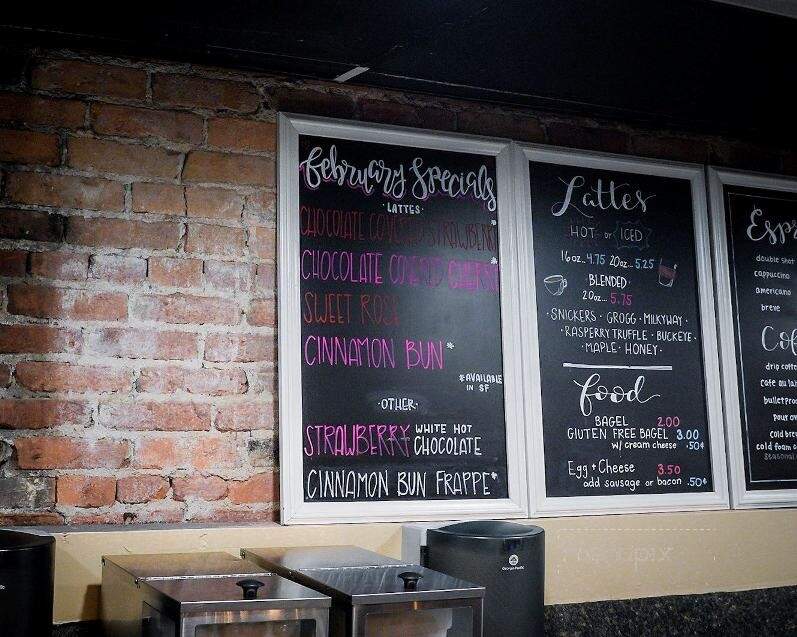 February Specials
·LATTES·
CHOCOLATE COVERED STRAWBERRY*
CHOCOLATE COVERED CHERRY*
SWEET ROSE
CINNAMON BUN*
*AVAILABLE
IN SF
·OTHER·
STRAWBERRY WHITE HOT
CHOCOLATE
CINNAMON BUN FRAPPE*
Lattes
HOT or ICED
16oz... 4.75 20oz... 5.25
·BLENDED·
20oz... 5.75
·SNICKERS · GROGG · MILKYWAY·
·RASPBERRY TRUFFLE · BUCKEYE·
·MAPLE · HONEY·
food
BAGEL 2.00
GLUTEN FREE BAGEL 3.00
w/ cream cheese .50¢
Egg + Cheese 3.50
add sausage or bacon .50¢
double shot
cappuccino
americano
breve
drip coffee
cafe au lait
bulletproof
pour over
cold brew
cold foam
seasonal
Georgia-Pacific